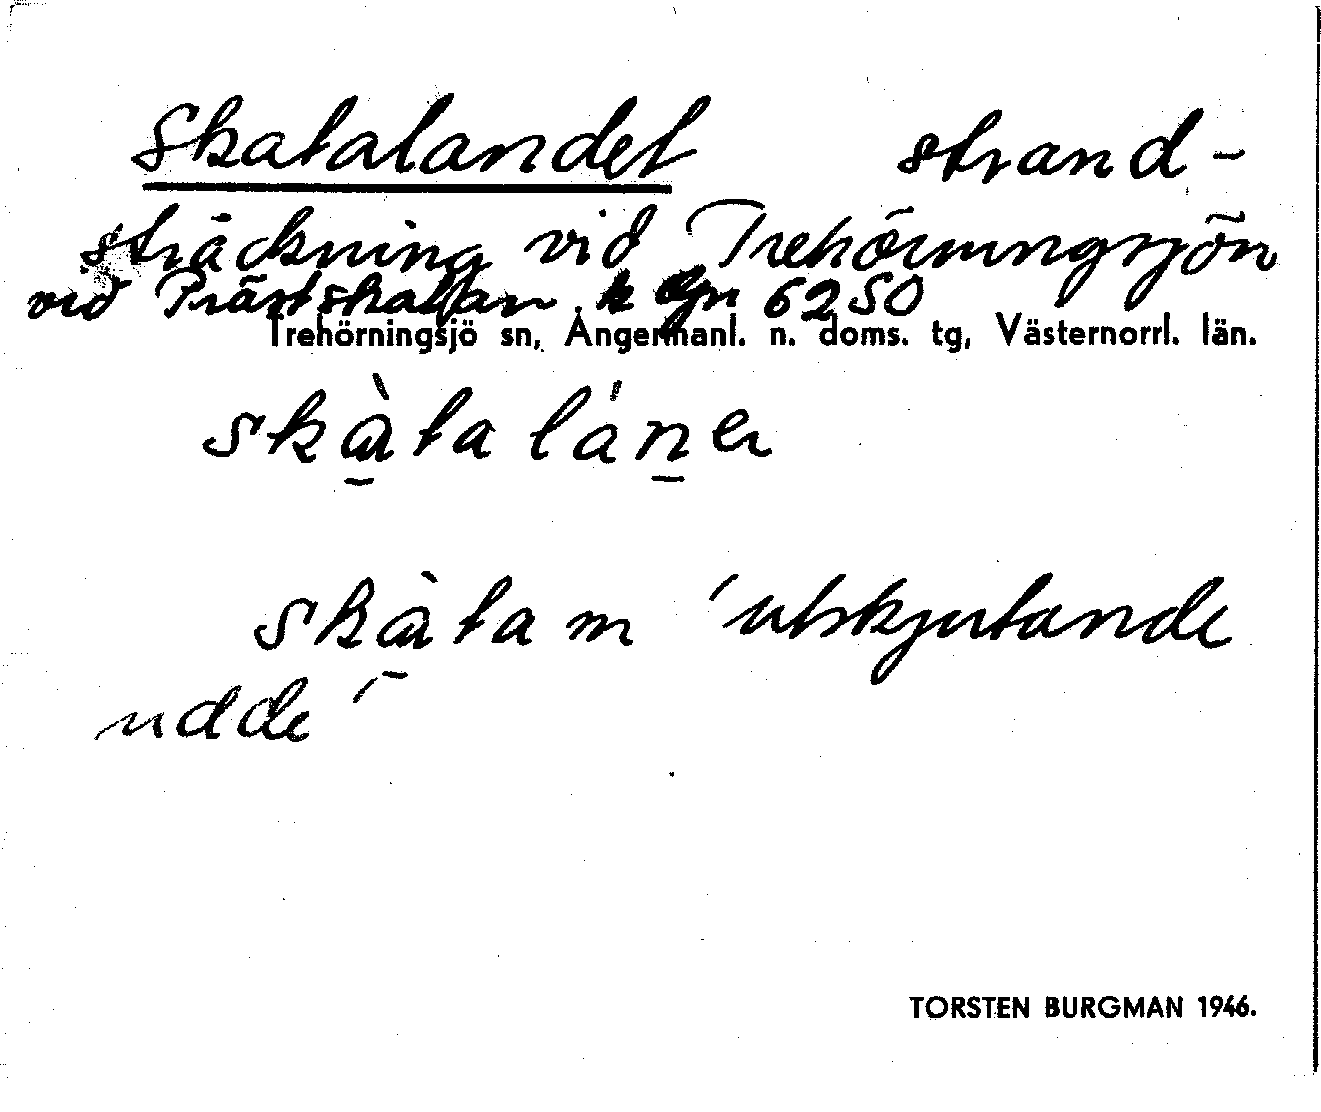 Skatalandet strand-
sträckning vid Trehörningsjön
vid Prästskatan. k 6250
Trehörningsjö sn, Ångermanl. n. doms. tg, Västernorrl. län.
skàta láṉer
skàtam 'utskjutande
udde'
TORSTEN BURGMAN 1946.